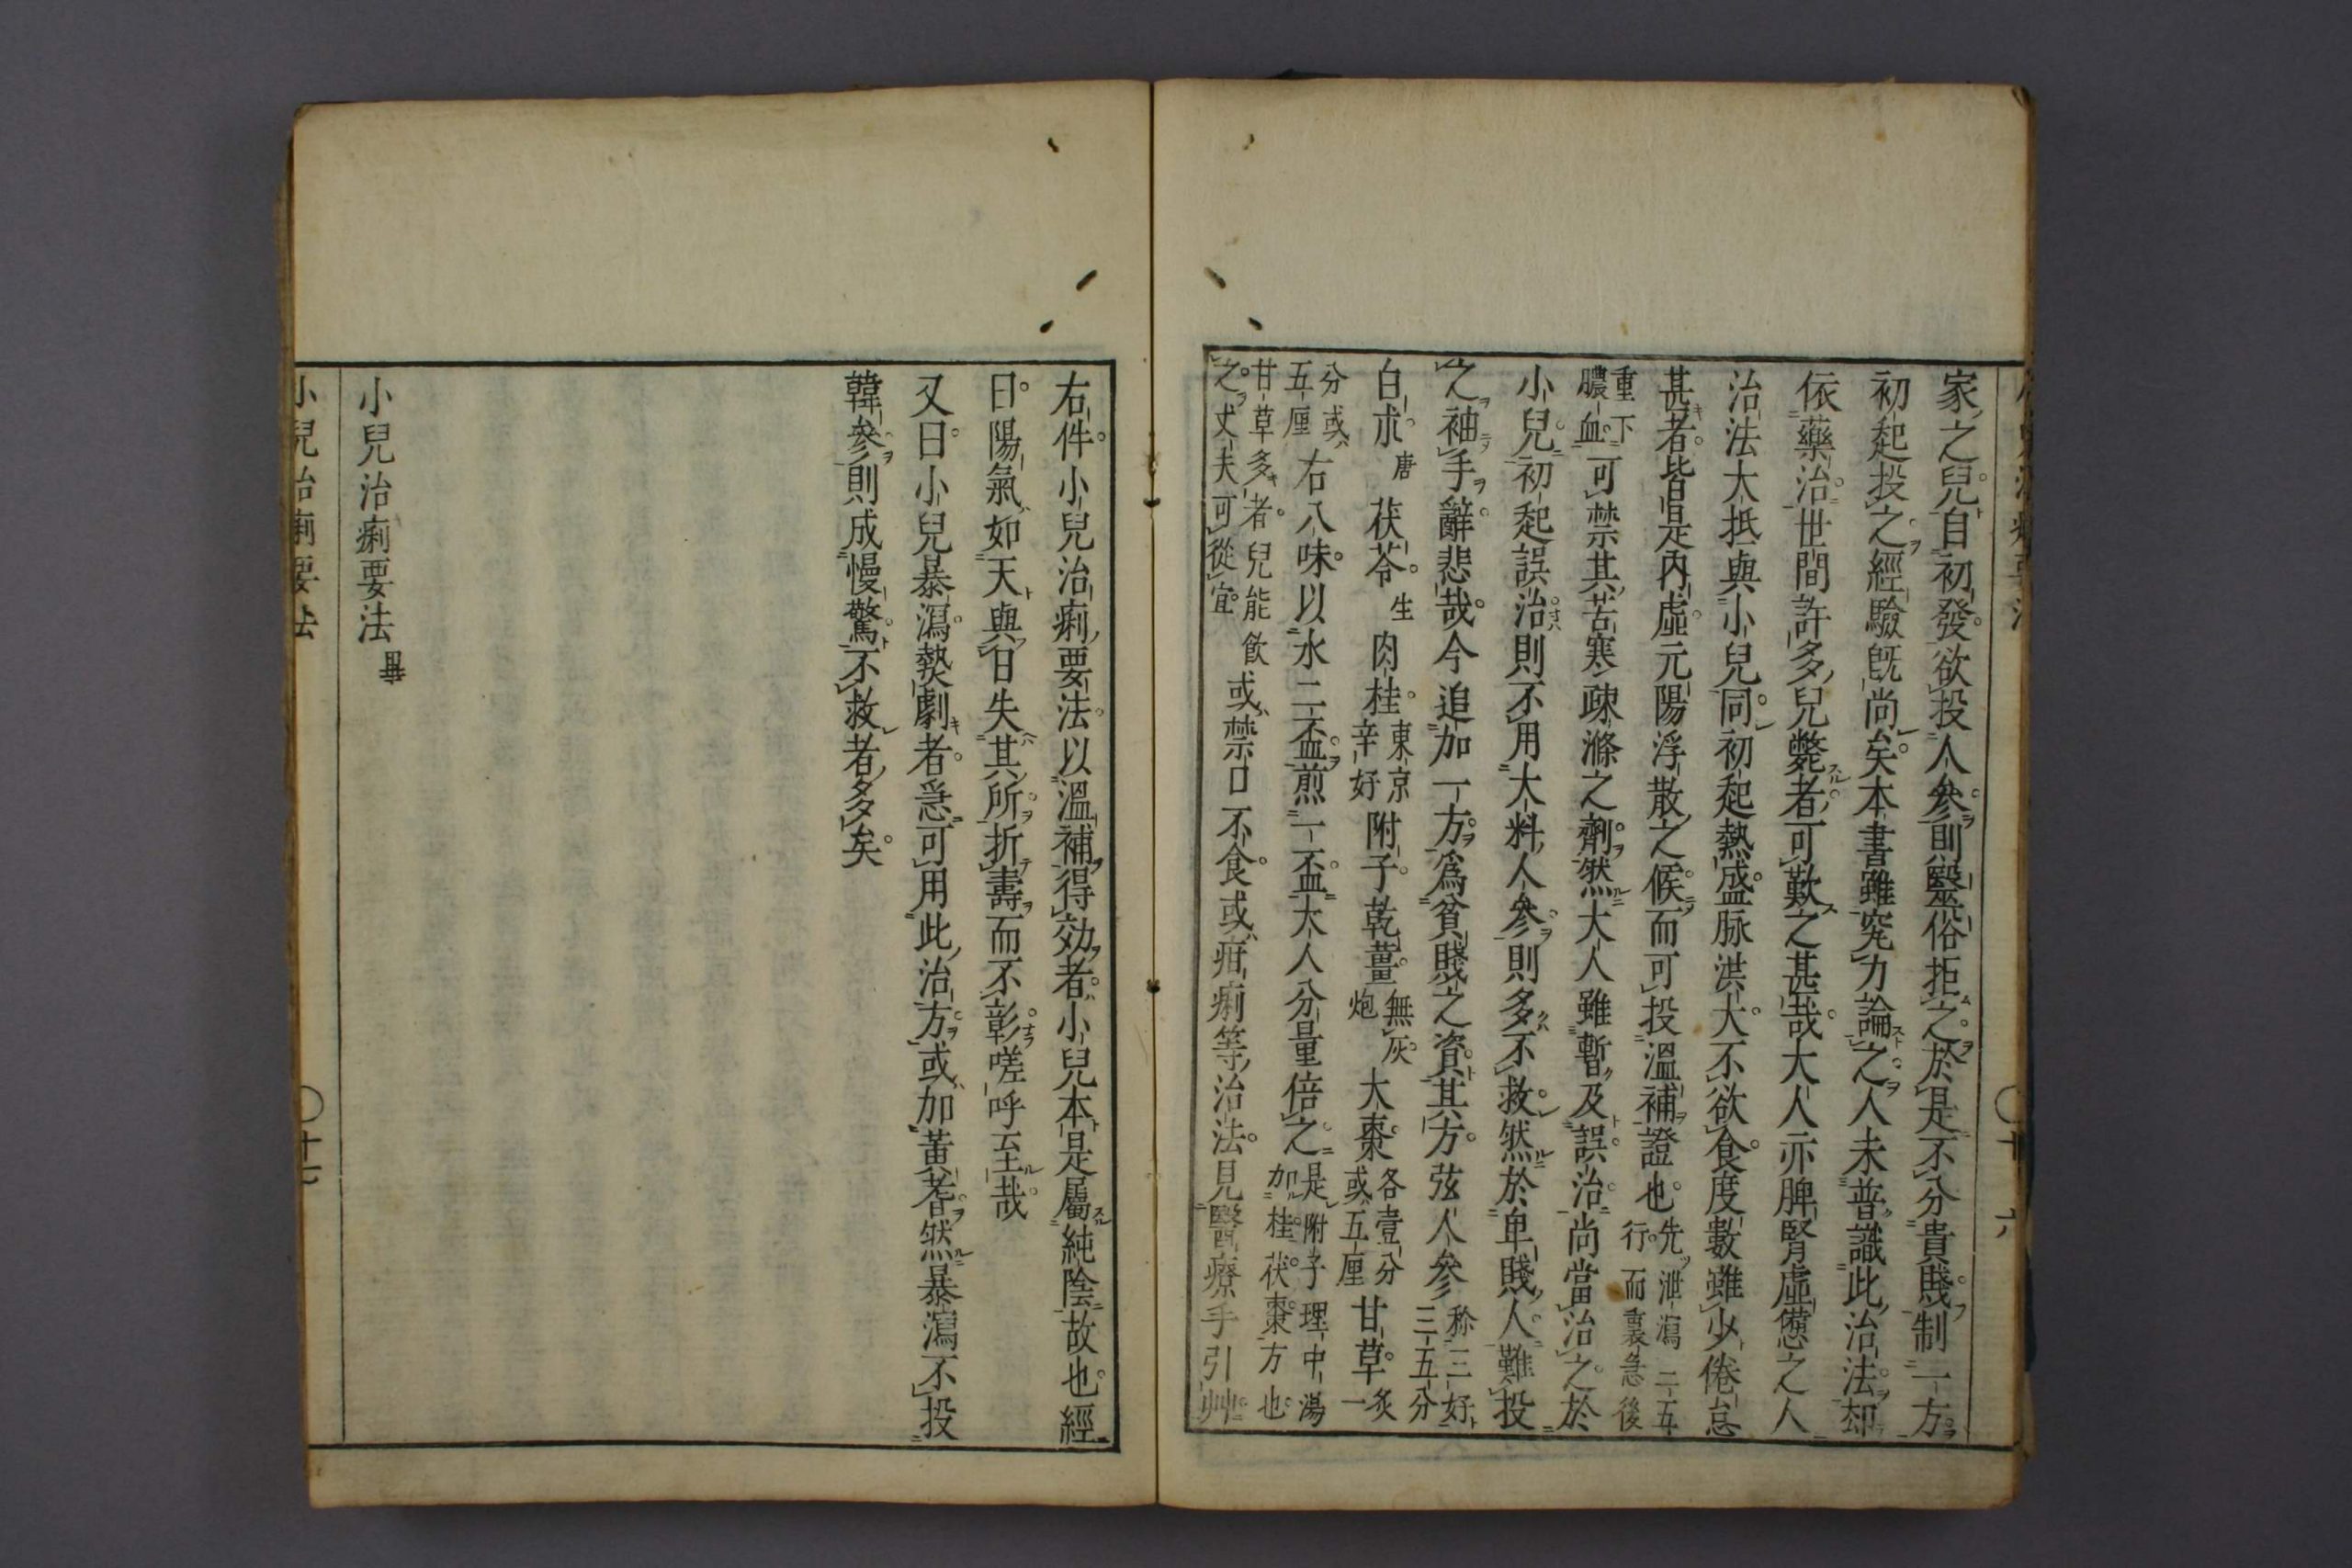 家之兒自初發欲投人參則毉俗拒之於是不分貴賤制一方
初起投之經驗既尚矣本書雖究力論之人未普識此治法却
依藥治世間許多兒斃者可歎之甚哉大人亦脾腎虛憊之人
治法大抵與小兒同初起熱盛脉洪大不欲食度數雖少倦怠
甚者皆是內虛元陽浮散之候而可投溫補證也先泄瀉二五行而裏急後
重下膿血可禁其苦寒疎滌之劑然大人雖暫及誤治尚當治之於
小兒初起誤治則不用大料人參則多不救然於卑賤人難投
之袖手辭悲哉今追加一方爲貧賤之資其方弦人參稱三好三五分
白朮唐茯苓生肉桂東京辛好附子乾薑無灰炮大棗各壹分或五厘甘草炙一
分或五厘右八味以水二盃煎一盃大人分量倍之是附子理中湯加桂茯棗方也
甘草多者兒能飲之丈夫可從宜或禁口不食或疳痢等治法見醫療手引艸
右件小兒治痢要法以溫補得効者小兒本是屬純陰故也經
曰陽氣如天與日失其所折壽而不彰嗟呼至哉
又曰小兒暴瀉熱劇者急可用此治方或加黃耆然暴瀉不投
韓參則成慢驚不救者多矣
小兒治痢要法畢
小兒治痢要法 〇十七